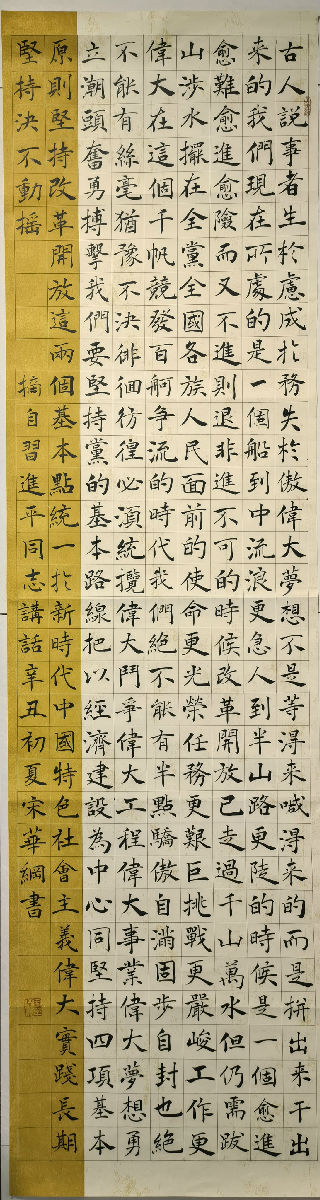 古人說事者生於慮成於務失於傲偉大夢想不是等得來喊得來的而是拼出來干出
來的我們現在所處的是一個船到中流浪更急人到半山路更陡的時候是一個愈進
愈難愈進愈險而又不進則退非進不可的時候改革開放已走過千山萬水但仍需跋
山涉水擺在全黨全國各族人民面前的使命更光榮任務更艱巨挑戰更嚴峻工作更
偉大在這個千帆競發百舸爭流的時代我們絕不能有半點驕傲自滿固步自封也絕
不能有絲毫猶豫不決徘徊彷徨必須統攬偉大鬥爭偉大工程偉大事業偉大夢想勇
立潮頭奮勇搏擊我們要堅持黨的基本路線把以經濟建設為中心同堅持四項基本
原則堅持改革開放這兩個基本點統一於新時代中國特色社會主義偉大實踐長期
堅持決不動搖
摘自習進平同志講話辛丑初夏宋華綱書